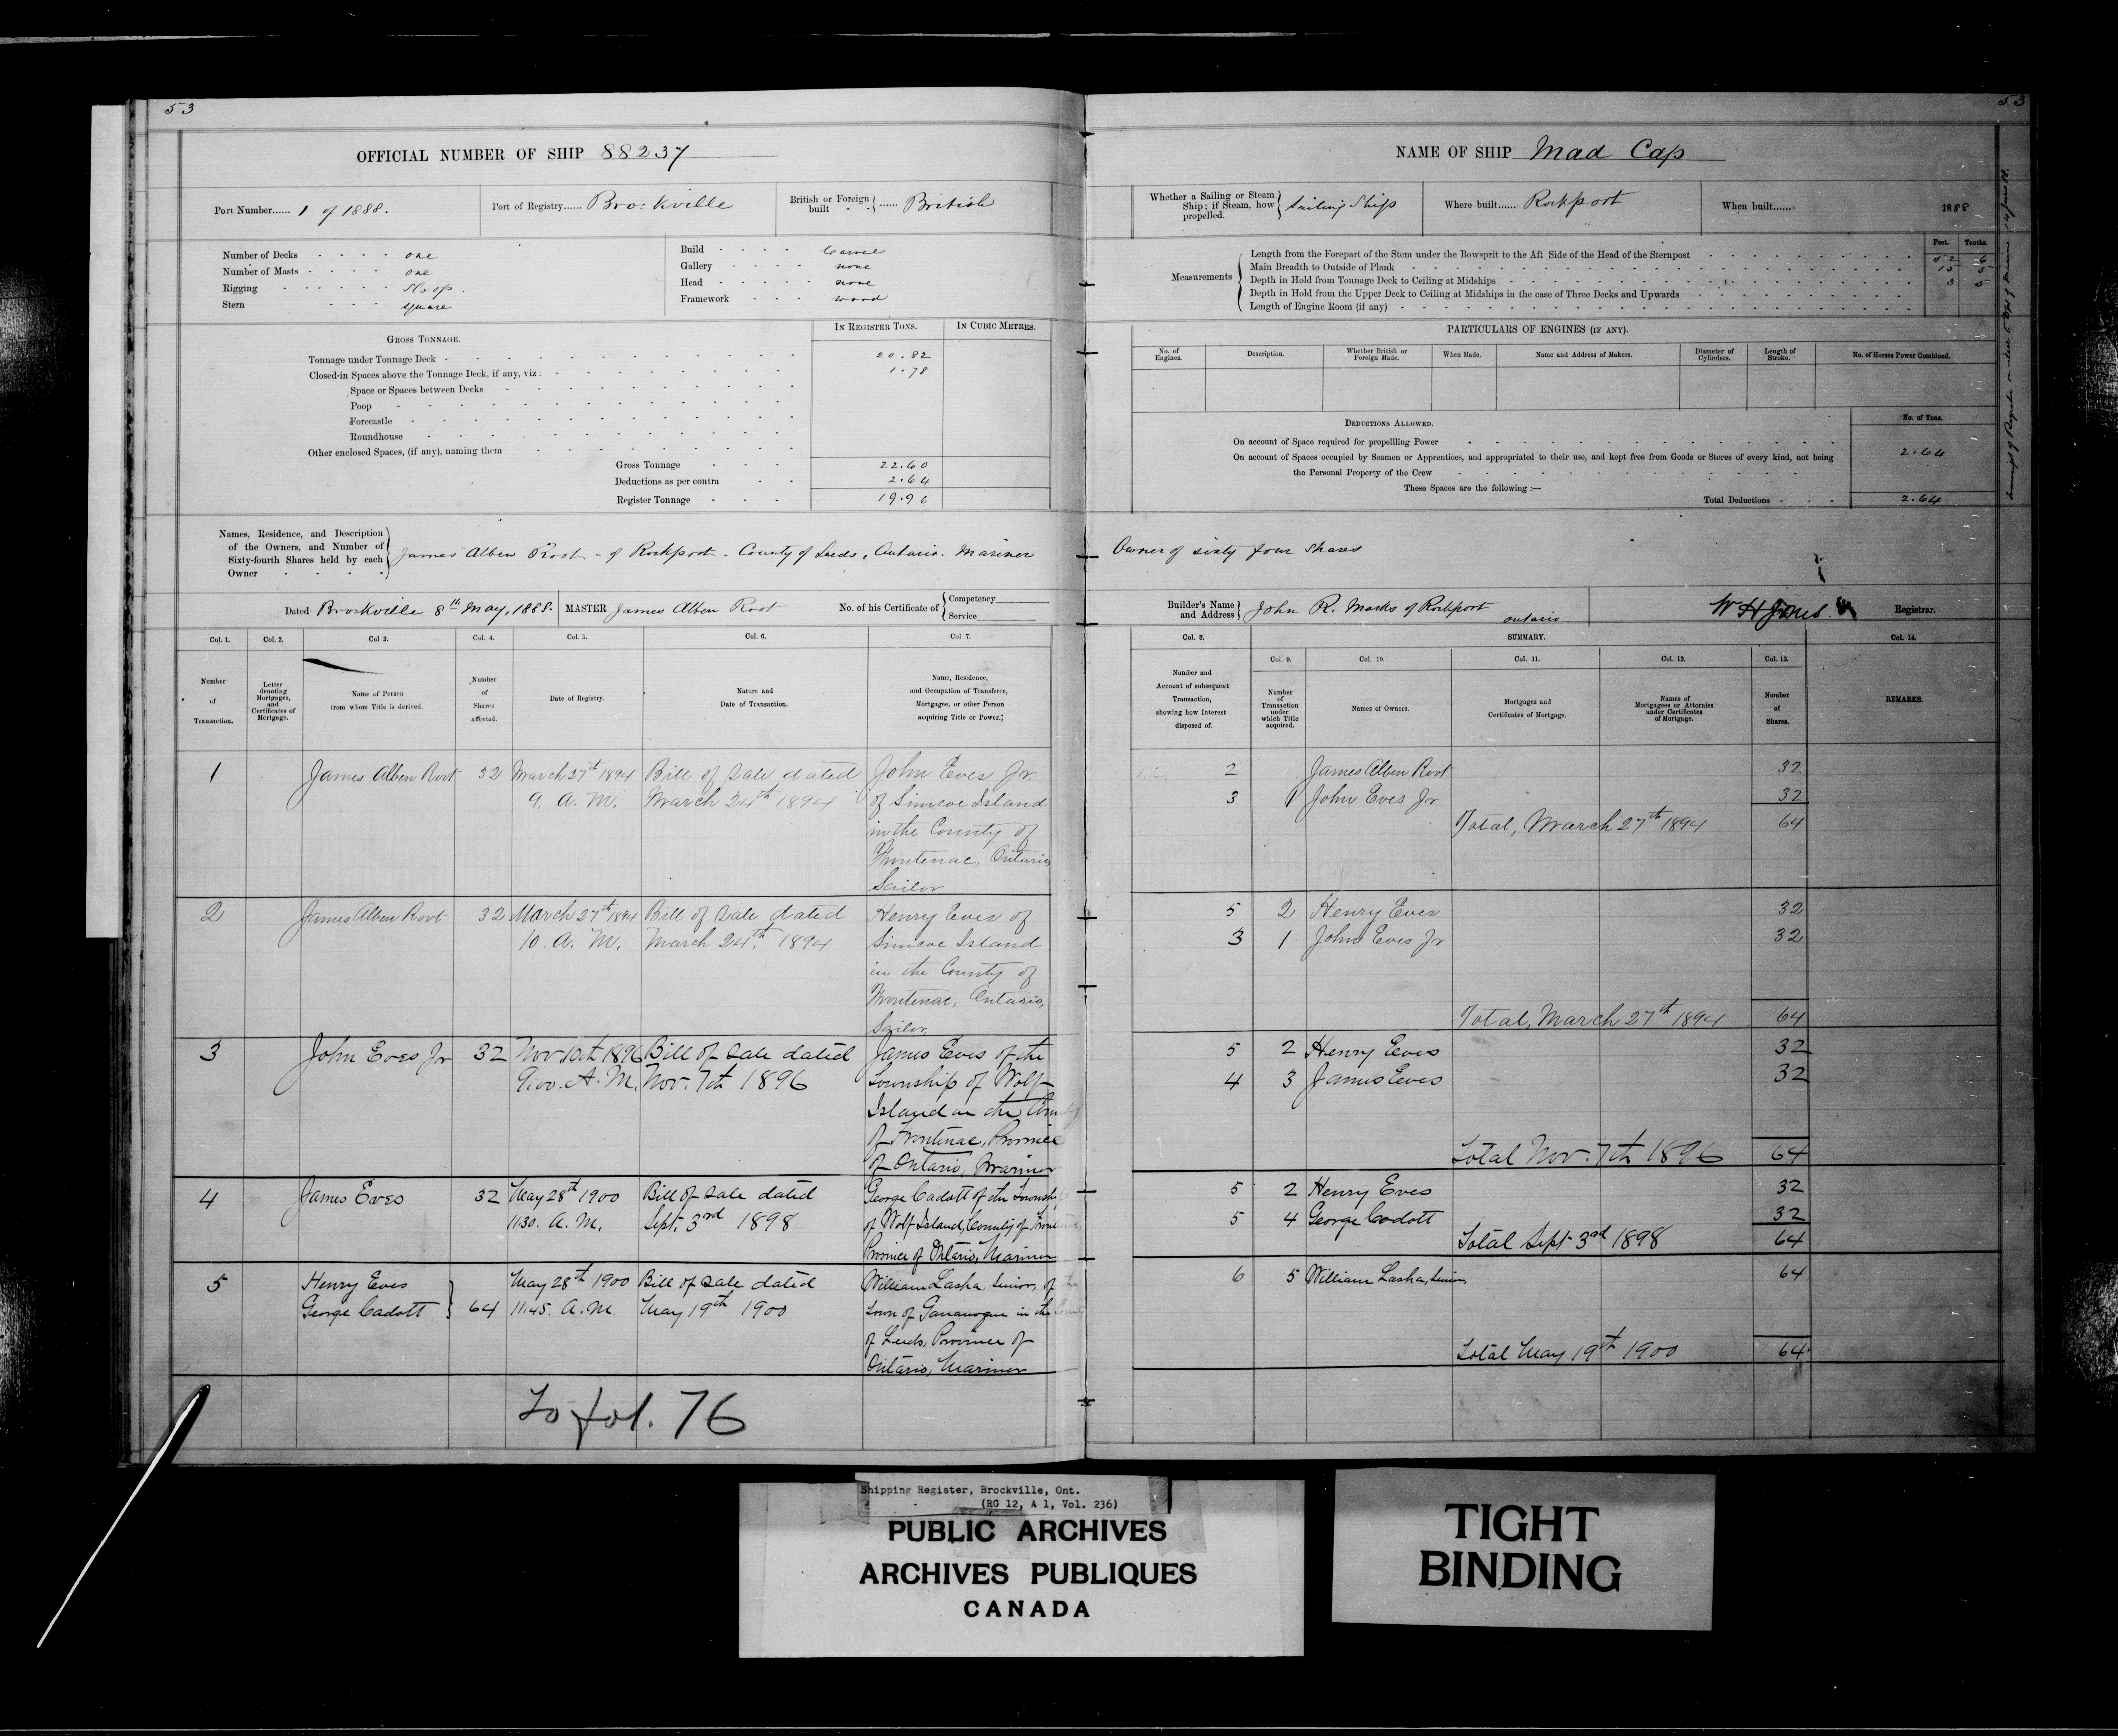 53
OFFICIAL NUMBER OF SHIP 88237
Port Number...... 1 of 1888.
Port of Registry...... Brockville
British or Foreign built ...... British
Number of Decks one
Number of Masts one
Rigging Sloop.
Stern square
Build Carvel
Gallery none
Head none
Framework wood
GROSS TONNAGE.
IN REGISTER TONS.
IN CUBIC METRES.
Tonnage under Tonnage Deck 20.82
Closed-in Spaces above the Tonnage Deck, if any, viz: 1.78
Space or Spaces between Decks
Poop
Forecastle
Roundhouse
Other enclosed Spaces, (if any), naming them
Gross Tonnage 22.60
Deductions as per contra 2.64
Register Tonnage 19.96
Names, Residence, and Description
of the Owners, and Number of
Sixty-fourth Shares held by each
Owner
James Alben Root - of Rockport - County of Leeds, Ontario. Mariner
Dated Brockville 8th May, 1888.
MASTER James Alben Root
No. of his Certificate of
Competency
Service
Col. 1.
Col. 2.
Col 3.
Col. 4.
Col. 5.
Col. 6.
Col 7.
Number of Transaction.
Letter denoting Mortgages, and Certificates of Mortgage.
Name of Person from whom Title is derived.
Number of Shares affected.
Date of Registry.
Nature and Date of Transaction.
Name, Residence, and Occupation of Transferee, Mortgagee, or other Person acquiring Title or Power.
1 James Alben Root 32 March 27th 1894 Bill of Sale dated John Eves Jr.
9. A. M. March 24th 1894 of Simcoe Island
in the County of
Frontenac, Ontario,
Sailor
2 James Alben Root 32 March 27th 1894 Bill of Sale dated Henry Eves of
10. A. M. March 24th 1894 Simcoe Island
in the County of
Frontenac, Ontario,
Sailor,
3 John Eves Jr 32 Nov 10th 1896 Bill of Sale dated James Eves of the
9.00. A. M. Nov. 7th 1896 Township of Wolf
Island in the County
of Frontenac, Province
of Ontario, Mariner
4 James Eves 32 May 28th 1900 Bill of Sale dated George Cadott of the Township
11.30. A. M. Sept. 3rd 1898 of Wolf Island, County of
Province of Ontario, Mariner
5 Henry Eves May 28th 1900 Bill of Sale dated William Lasha, Senior, of the
George Cadott 64 11.45. A. M. May 19th 1900 Town of Gananoque in the County
of Leeds, Province of
Ontario, Mariner
To fol. 76
53
NAME OF SHIP Mad Cap
Whether a Sailing or Steam
Ship; if Steam, how
propelled.
Sailing Ship
Where built...... Rockport
When built...... 1888
Measurements
Feet. Tenths.
Length from the Forepart of the Stem under the Bowsprit to the Aft Side of the Head of the Sternpost 52 6
Main Breadth to Outside of Plank 15 5
Depth in Hold from Tonnage Deck to Ceiling at Midships 3 5
Depth in Hold from the Upper Deck to Ceiling at Midships in the case of Three Decks and Upwards
Length of Engine Room (if any)
PARTICULARS OF ENGINES (IF ANY).
No. of Engines.
Description.
Whether British or Foreign Made.
When Made.
Name and Address of Makers.
Diameter of Cylinders.
Length of Stroke.
No. of Horses Power Combined.
DEDUCTIONS ALLOWED.
No. of Tons.
On account of Space required for propellling Power
On account of Spaces occupied by Seamen or Apprentices, and appropriated to their use, and kept free from Goods or Stores of every kind, not being
the Personal Property of the Crew 2.64
These Spaces are the following :—
Total Deductions 2.64
Owner of sixty four Shares
Builder's Name and Address John R. Marks of Rockport Ontario
W H Jones Registrar.
Col. 8.
SUMMARY.
Col. 14.
Col. 9.
Col. 10.
Col. 11.
Col. 12.
Col. 13.
Number and Account of subsequent Transaction, showing how Interest disposed of.
Number of Transaction under which Title acquired.
Names of Owners.
Mortgages and Certificates of Mortgage.
Names of Mortgagees or Attornies under Certificates of Mortgage.
Number of Shares.
REMARKS.
2 James Alben Root 32
3 1 John Eves Jr 32
Total, March 27th 1894 64
5 2 Henry Eves 32
3 1 John Eves Jr 32
Total, March 27th 1894 64
5 2 Henry Eves 32
4 3 James Eves 32
Total Nov. 7th 1896 64
5 2 Henry Eves 32
5 4 George Cadott 32
Total Sept 3rd 1898 64
6 5 William Lasha, Senior 64
Total May 19th 1900 64
Shipping Register, Brockville, Ont.
(RG 12, A 1, Vol. 236)
PUBLIC ARCHIVES
ARCHIVES PUBLIQUES
CANADA
TIGHT
BINDING